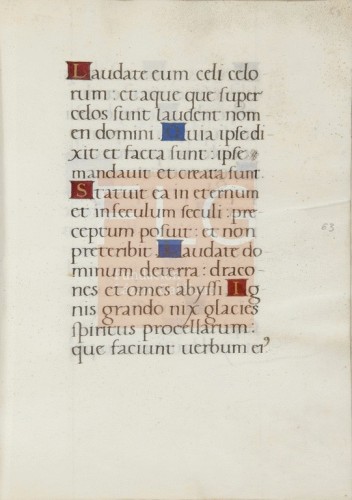 Laudate eum celi celo
rum: et aque que super
celos sunt laudent nom
en domini. Quia ipse di
xit et facta sunt: ipse
mandauit et creata sunt.
Statuit ea in eternum
et in seculum seculi: pre
ceptum posuit: et non
preteribit. Laudate do
minum de terra: draco
nes et omes abyssi. Ig
nis grando nix glacies
spiritus procellarum:
que faciunt uerbum ei9
63